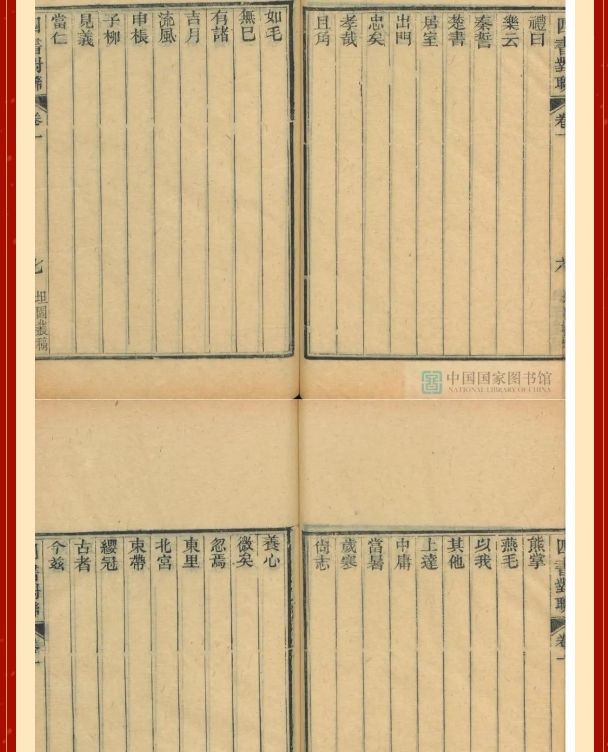 四書對聯 卷一 六
禮曰
樂云
秦誓
楚書
居室
出門
忠矣
孝哉
且角
如毛
無巳
有諸
吉月
流風
申棖
子柳
見義
當仁
四書對聯 卷一 七 坦園叢稿
中国国家图书馆
NATIONAL LIBRARY OF CHINA
四書對聯 卷一
熊掌
燕毛
以我
其他
上達
中庸
當暑
歲寒
尚志
養心
微矣
忽焉
東里
北宮
束帶
纓冠
古者
今茲
四書對聯 卷一